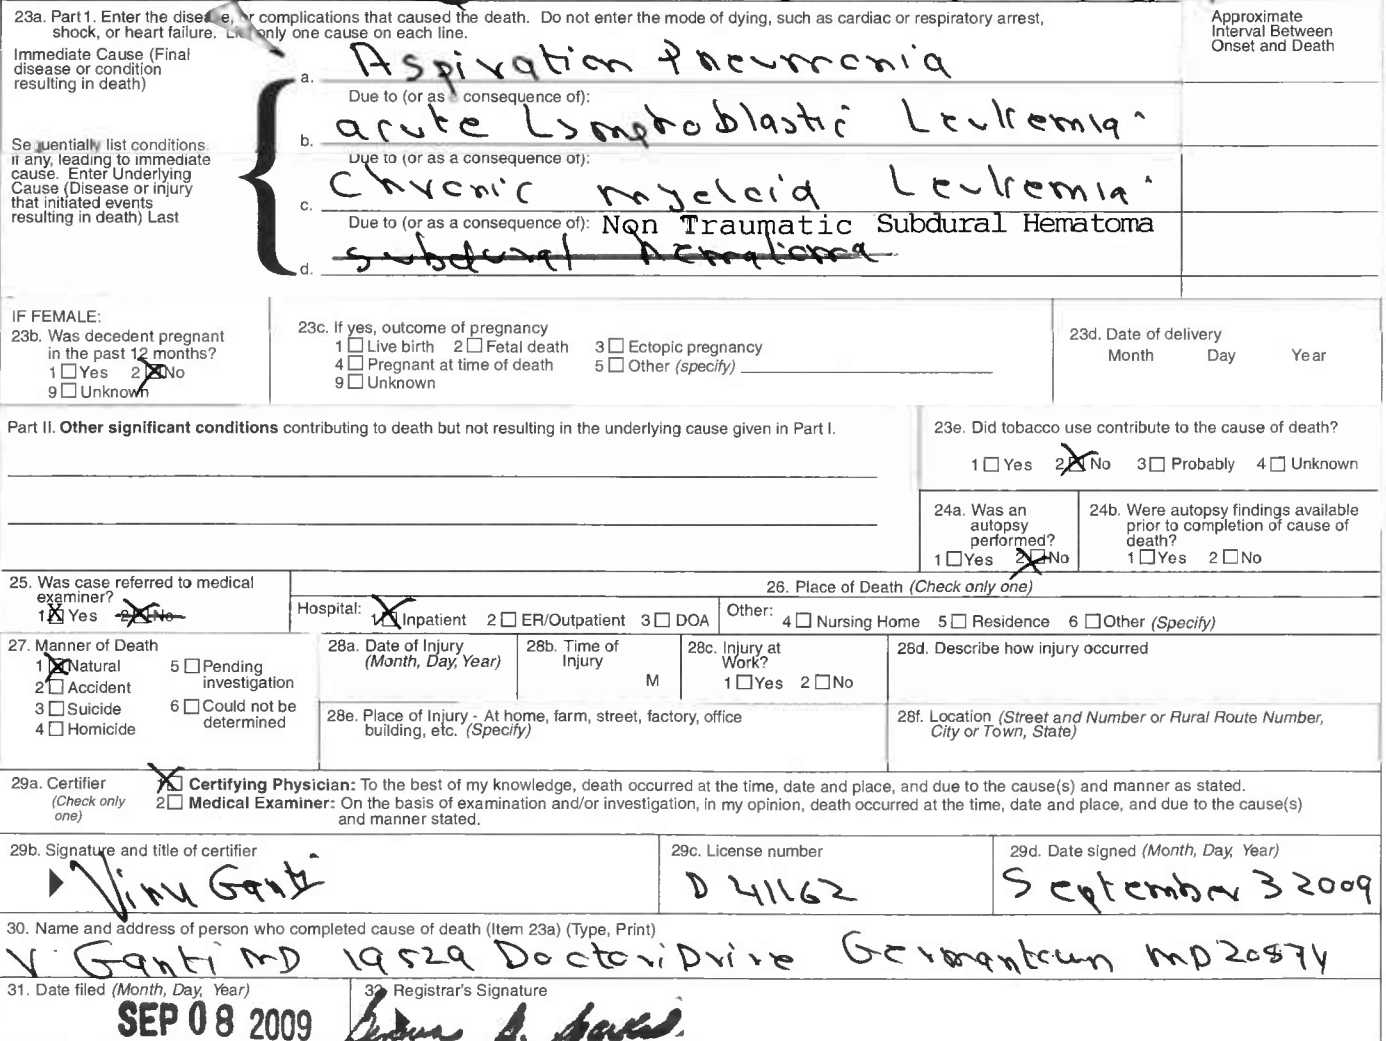 23a. Part1. Enter the disease, or complications that caused the death. Do not enter the mode of dying, such as cardiac or respiratory arrest,
shock, or heart failure. List only one cause on each line.
Approximate
Interval Between
Onset and Death
Immediate Cause (Final
disease or condition
resulting in death)
a. Aspiration Pneumonia
Due to (or as a consequence of):
b. acute Lymphoblastic Leukemia
Sequentially list conditions
if any, leading to immediate
cause. Enter Underlying
Cause (Disease or injury
that initiated events
resulting in death) Last
Due to (or as a consequence of):
c. Chronic myeloid Leukemia
Due to (or as a consequence of): Non Traumatic Subdural Hematoma
d. subdural hematoma
IF FEMALE:
23b. Was decedent pregnant
in the past 12 months?
1 Yes 2 No
9 Unknown
23c. If yes, outcome of pregnancy
1 Live birth 2 Fetal death 3 Ectopic pregnancy
4 Pregnant at time of death 5 Other (specify)
9 Unknown
23d. Date of delivery
Month Day Year
Part II. Other significant conditions contributing to death but not resulting in the underlying cause given in Part I.
23e. Did tobacco use contribute to the cause of death?
1 Yes 2 No 3 Probably 4 Unknown
24a. Was an
autopsy
performed?
1 Yes 2 No
24b. Were autopsy findings available
prior to completion of cause of
death?
1 Yes 2 No
25. Was case referred to medical
examiner?
1 Yes 2 No
26. Place of Death (Check only one)
Hospital: 1 Inpatient 2 ER/Outpatient 3 DOA Other: 4 Nursing Home 5 Residence 6 Other (Specify)
27. Manner of Death
1 Natural 5 Pending
investigation
2 Accident
3 Suicide 6 Could not be
determined
4 Homicide
28a. Date of Injury
(Month, Day, Year)
28b. Time of
Injury
M
28c. Injury at
Work?
1 Yes 2 No
28d. Describe how injury occurred
28e. Place of Injury - At home, farm, street, factory, office
building, etc. (Specify)
28f. Location (Street and Number or Rural Route Number,
City or Town, State)
29a. Certifier
(Check only
one)
1 Certifying Physician: To the best of my knowledge, death occurred at the time, date and place, and due to the cause(s) and manner as stated.
2 Medical Examiner: On the basis of examination and/or investigation, in my opinion, death occurred at the time, date and place, and due to the cause(s)
and manner stated.
29b. Signature and title of certifier
Vinu Ganti
29c. License number
D 41162
29d. Date signed (Month, Day, Year)
September 3 2009
30. Name and address of person who completed cause of death (Item 23a) (Type, Print)
V. Ganti MD 19529 Doctors Drive Germantown MD 20874
31. Date filed (Month, Day, Year)
SEP 08 2009
32. Registrar's Signature